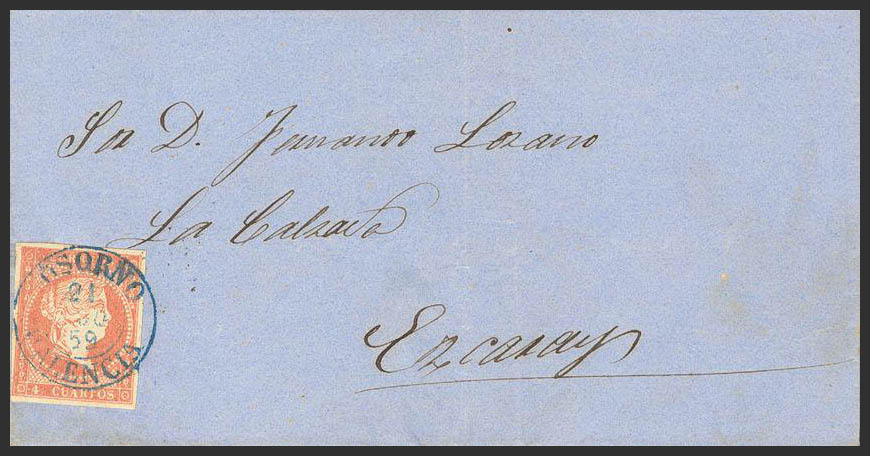 Sor D. Fernando Lozano
La Calzada
OSORNO
21
59
PALENCIA
4 CUARTOS
Ezcaray